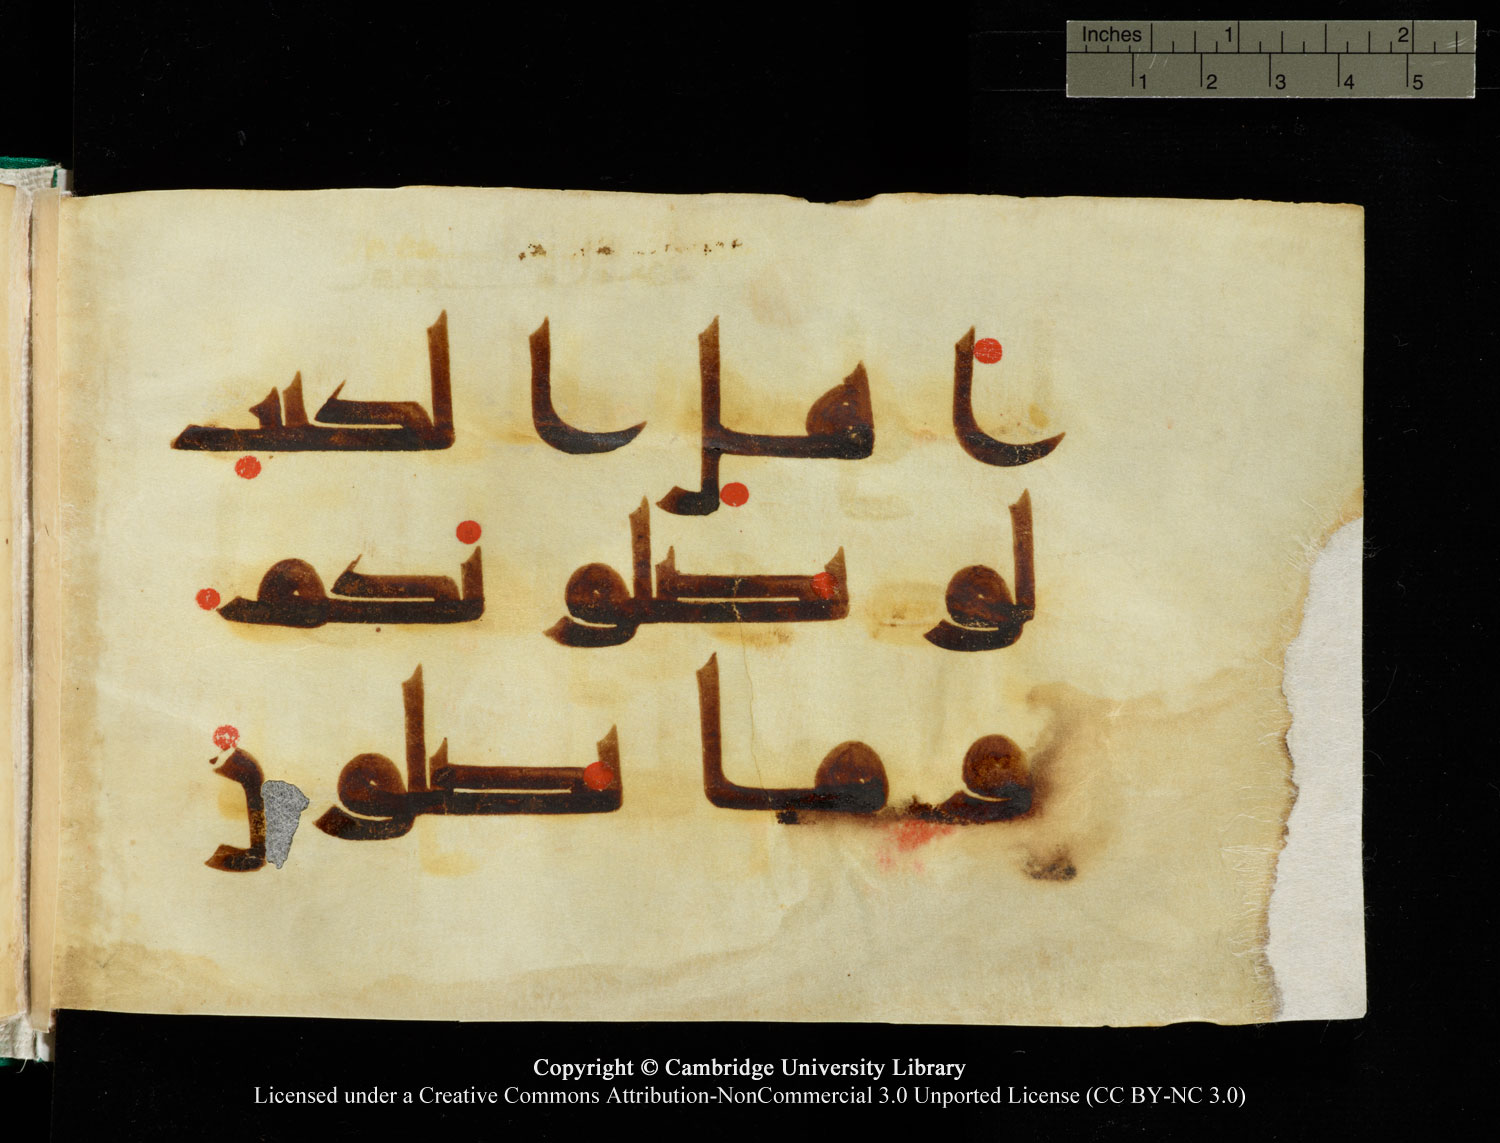 Inches 1 2
1 2 3 4 5
ا هل ا لكتب
لو يضلو نكم
و ما يضلو ن
Copyright © Cambridge University Library
Licensed under a Creative Commons Attribution-NonCommercial 3.0 Unported License (CC BY-NC 3.0)